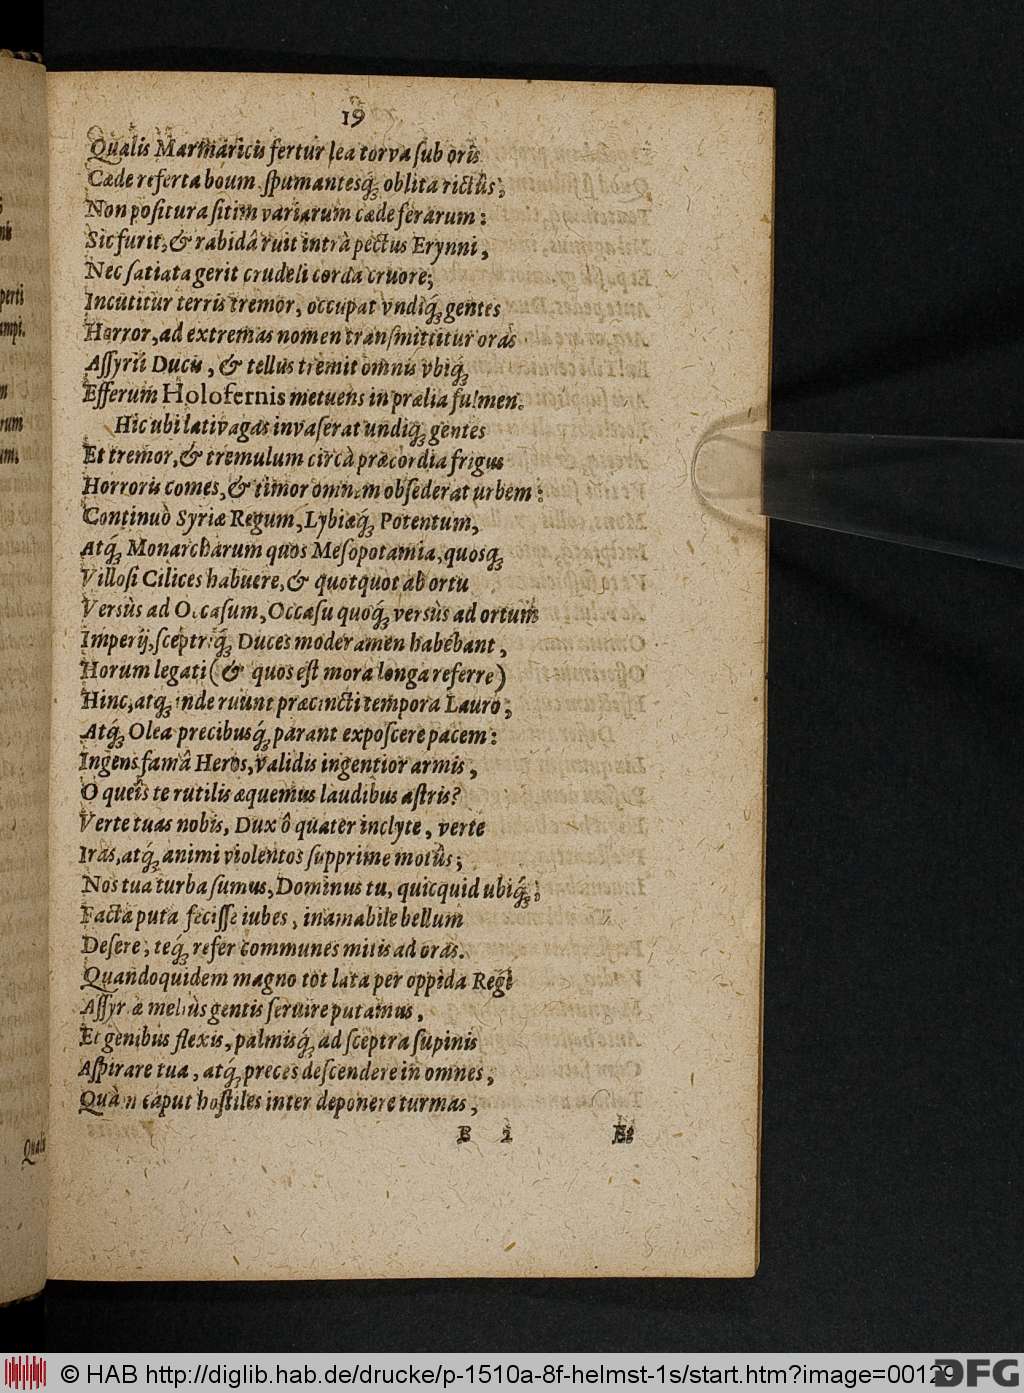 19
Qualis Marmaricis fertur lea torva sub oris
Cæde referta boum, spumantesq́; oblita rictûs;
Non positura sitim variarum cæde ferarum:
Sic furit, & rabidâ ruit intrà pectus Erynni,
Nec satiata gerit crudeli corda cruore;
Incutitur terris tremor, occupat vndiq́; gentes
Horror, ad extremas nomen transmittitur oras
Assyrii Ducis, & tellus tremit omnis vbiq́;
Efferum Holofernis metuens in prælia fulmen.
Hic ubi lativagas invaserat undiq́; gentes
Et tremor, & tremulum circà præcordia frigus
Horroris comes, & timor omnem obsederat urbem:
Continuò Syriæ Regum, Lybiæq́; Potentum,
Atq́; Monarcharum quos Mesopotamia, quosq́;
Villosi Cilices habuere, & quotquot ab ortu
Versùs ad Occasum, Occasu quoq́; versùs ad ortum
Imperij, sceptriq́; Duces moderamen habebant,
Horum legati (& quos est mora longa referre)
Hinc, atq́; inde ruunt præcincti tempora Lauro,
Atq́; Olea precibusq́; parant exposcere pacem:
Ingens famâ Heros, validis ingentior armis,
O queîs te rutilis æquemus laudibus astris?
Verte tuas nobis, Dux ô quater inclyte, verte
Iras, atq́; animi violentos supprime motûs;
Nos tua turba sumus, Dominus tu, quicquid ubiq́;:
Facta puta fecisse iubes, inamabile bellum
Desere, teq́; refer communes mitis ad oras.
Quandoquidem magno tot lata per oppida Regi
Assyriæ meliùs gentis seruire putamus,
Et genibus flexis, palmisq́; ad sceptra supinis
Aspirare tua, atq́; preces descendere in omnes,
Quàm caput hostiles inter deponere turmas,
B 2 Et
perti
ampi.
rum
Qualis
© HAB http://diglib.hab.de/drucke/p-1510a-8f-helmst-1s/start.htm?image=00129
DFG